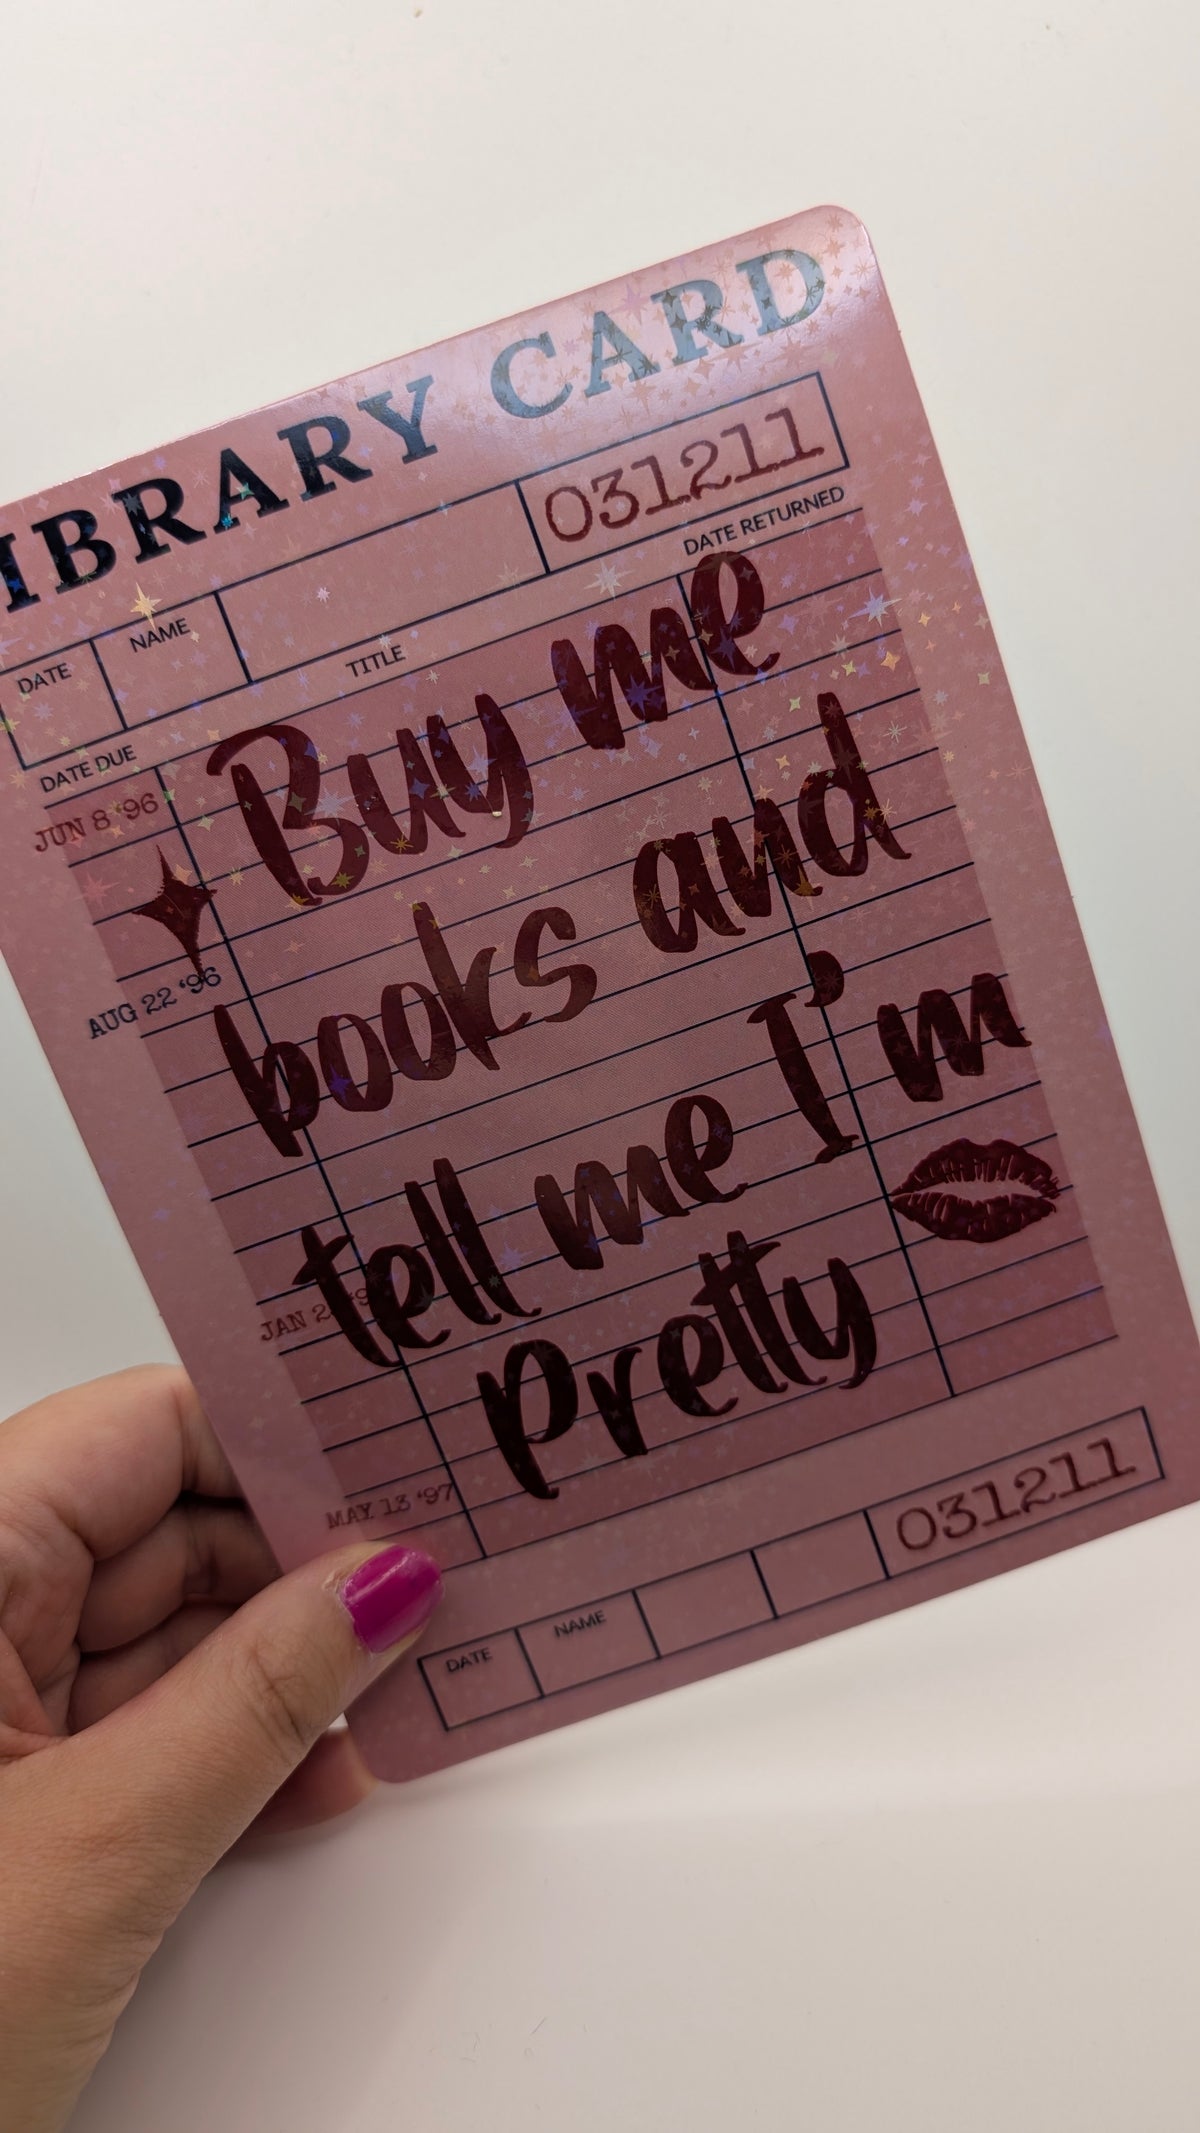 IBRARY CARD
031211
DATE NAME
DATE DUE TITLE DATE RETURNED
JUN 8 '96
Buy me
books and
AUG 22 '96
tell me I'm
JAN 2
Pretty
MAY 13 '97
031211
DATE NAME